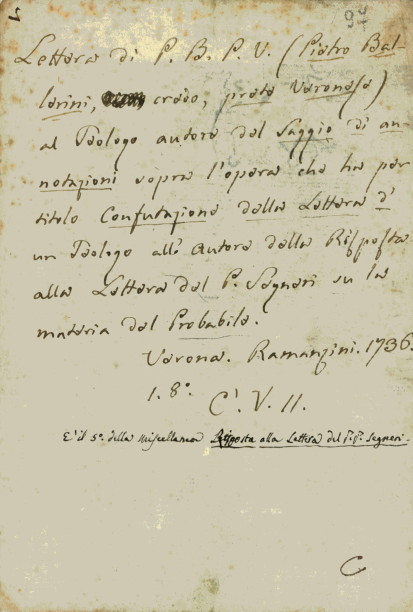 94
Lettera di P. B. P. V. (Pietro Bal-
lerini, credo, prete Veronese)
al Teologo autore del Saggio di an-
notazioni sopra l'opera che ha per
titolo Confutazione della Lettera d'
un Teologo all' Autore della Risposta
alla Lettera del P. Segneri su la
materia del Probabile.
Verona. Ramanzini. 1736.
1. 8°.
C'. V. 11.
E' il 5°. della Miscellanea Risposta alla Lettera del P. Segneri.
C